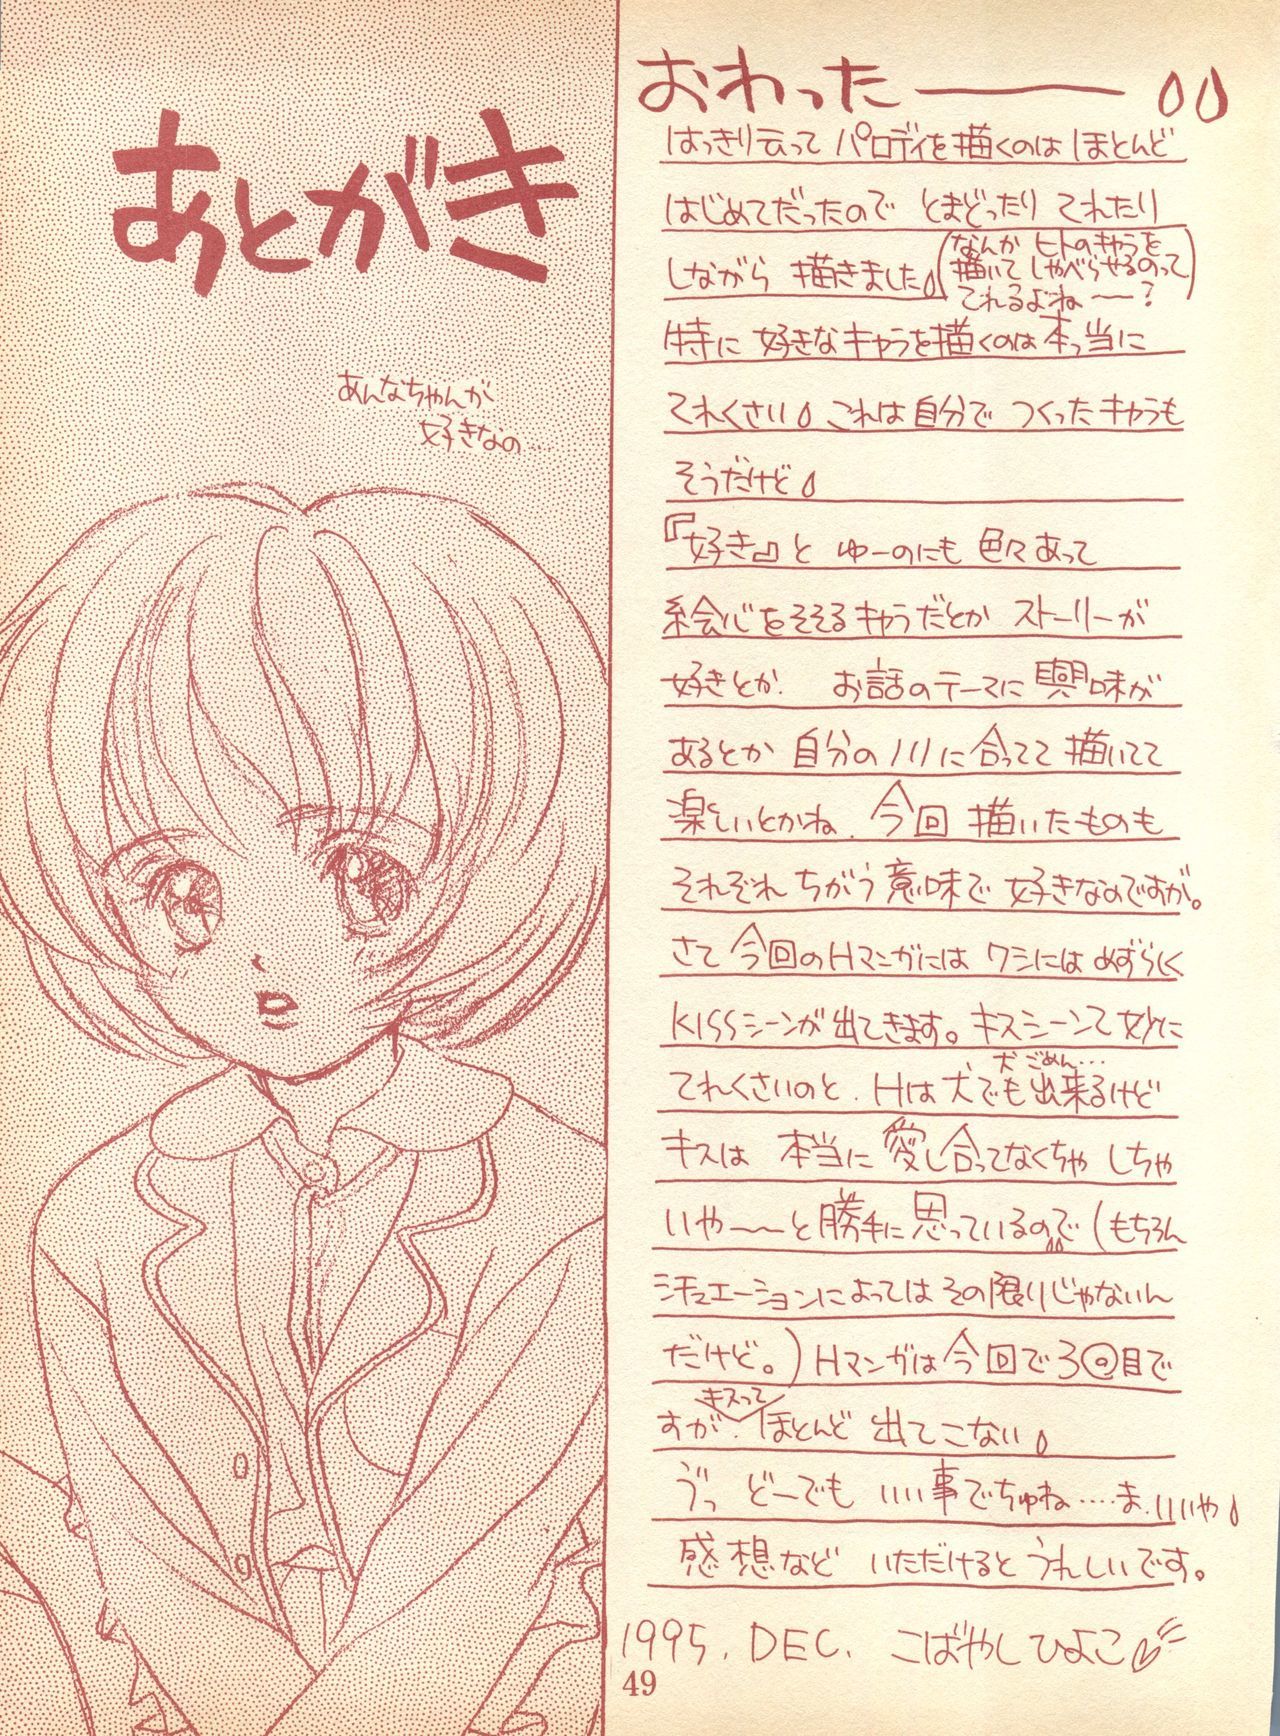 あとがき
あんなちゃんが
好きなの…
おわったー
はっきり云って パロディを描くのは ほとんど
はじめてだったので とまどったり てれたり
しながら 描きました
(なんか ヒトのキャラを
描いて しゃべらせるのって
てれるよね〜?)
特に 好きなキャラを描くのは本っ当に
てれくさい これは自分で つくったキャラも
そうだけど
『好き』と ゆーのにも 色々あって
絵心をそそるキャラだとか ストーリーが
好きとか. お話のテーマに興味が
あるとか 自分のノリに合ってて 描いてて
楽しいとかね. 今回 描いたものも
それぞれ ちがう意味で 好きなのですが。
さて 今回のHマンガには ワシには めずらしく
KISSシーンが出てきます。キスシーンて妙に
犬 ごめん…
てれくさいのと. Hは犬でも出来るけど
キスは 本当に愛し合ってなくちゃ しちゃ
いや〜〜と勝手に思っているので (もちろん
シチュエーションによってはその限りじゃないん
だけど。) Hマンガは今回で3回目で
キスって
すが. ほとんど 出てこない
ゔっ どーでも いい事でちゅね‥‥ま.いいや
感想など いただけると うれしいです。
1995. DEC. こばやしひよこ
49